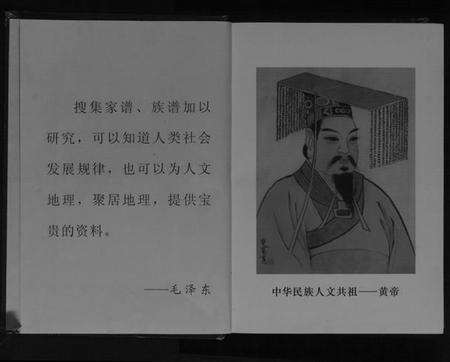 搜集家谱、族谱加以
研究，可以知道人类社会
发展规律，也可以为人文
地理，聚居地理，提供宝
贵的资料。
——毛泽东
中华民族人文共祖——黄帝